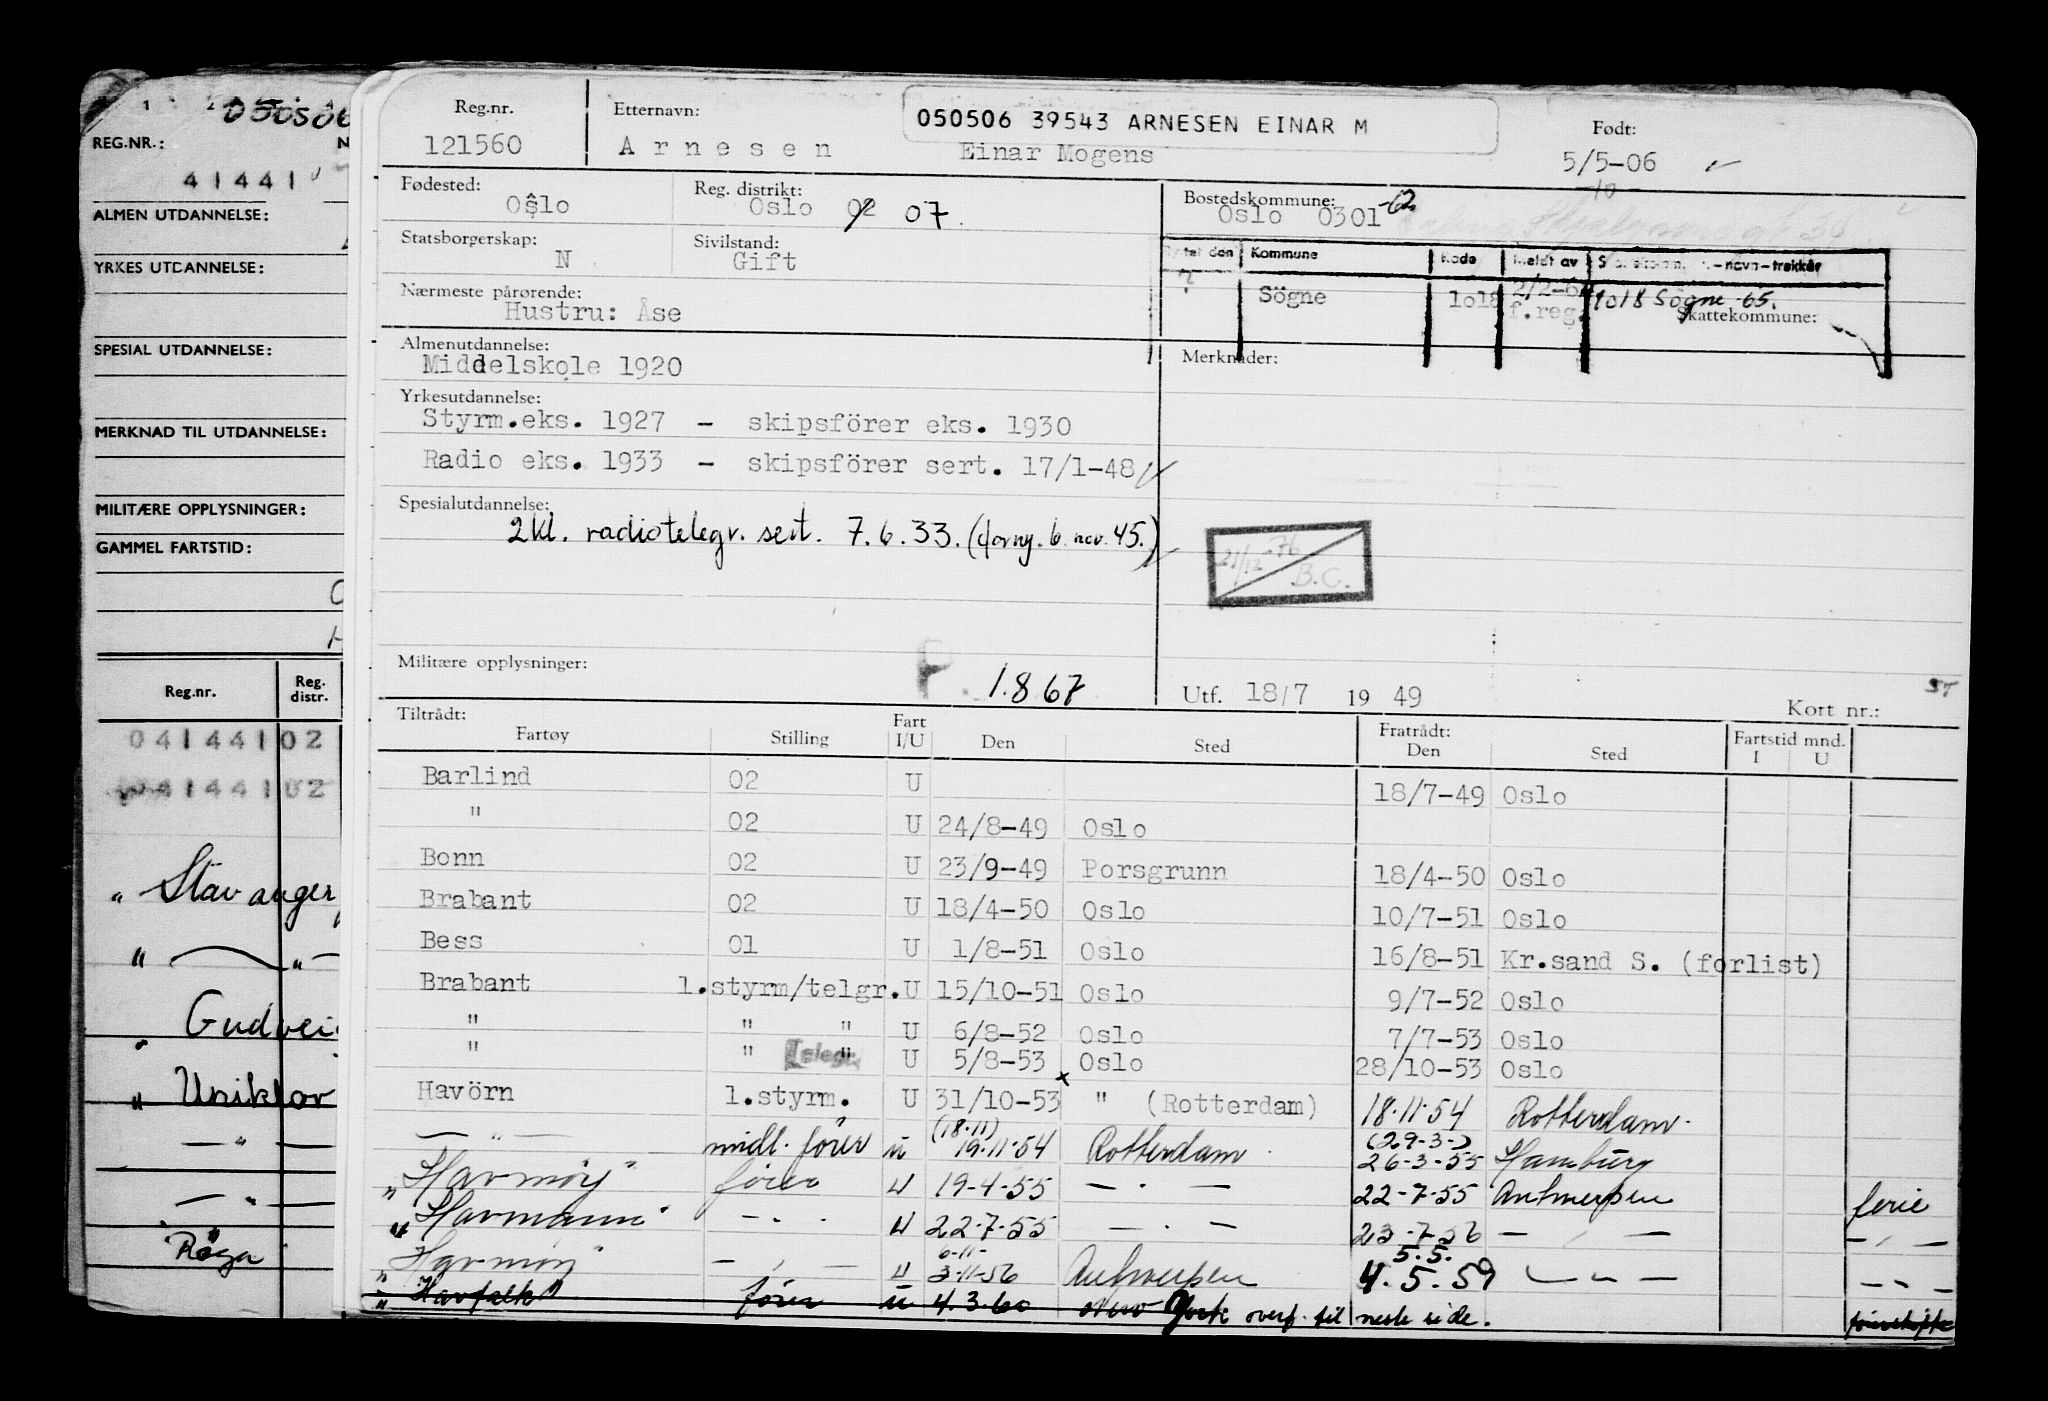 050506
REG.NR.:
41441
ALMEN UTDANNELSE:
YRKES UTDANNELSE:
SPESIAL UTDANNELSE:
MERKNAD TIL UTDANNELSE:
MILITÆRE OPPLYSNINGER:
GAMMEL FARTSTID:
Reg.nr. Reg. distr.
04144102
04144102
" Stavanger
" — " —
" Gudvei
" Uniklor
— " —
— " —
Røga
Reg.nr. Etternavn: 050506 39543 ARNESEN EINAR M Født:
121560 Arnesen Einar Mogens 5/5-06
Fødested: Reg. distrikt: Bostedskommune:
Oslo Oslo 02 07. Oslo 0301
Statsborgerskap: Sivilstand:
N Gift
Kommune Kode Meldt av
Nærmeste pårørende:
Hustru: Åse
Søgne 1018 f.reg. 1018 Søgne 65.
Skattekommune:
Almenutdannelse: Merknader:
Middelskole 1920
Yrkesutdannelse:
Styrm.eks. 1927 - skipsförer eks. 1930
Radio eks. 1933 - skipsförer sert. 17/1-48
Spesialutdannelse:
2kl. radiotelegr. sert. 7.6.33. (forny. 6. nov. 45.)
21/12-76 B.C.
Militære opplysninger: P. 1.8 67 Utf. 18/7 19 49 Kort nr.:
Tiltrådt: Fratrådt: Fartstid mnd.
Fartøy Stilling Fart I/U Den Sted Den Sted I U
Barlind 02 U 18/7-49 Oslo
" 02 U 24/8-49 Oslo
Bonn 02 U 23/9-49 Porsgrunn 18/4-50 Oslo
Brabant 02 U 18/4-50 Oslo 10/7-51 Oslo
Bess 01 U 1/8-51 Oslo 16/8-51 Kr.sand S. (forlist)
Brabant 1.styrm/telgr. U 15/10-51 Oslo 9/7-52 Oslo
" " " U 6/8-52 Oslo 7/7-53 Oslo
" " " U 5/8-53 Oslo 28/10-53 Oslo
Havörn 1.styrm. U 31/10-53 " (Rotterdam) 18.11.54 Rotterdam.
(18.11) (29-3-)
— " — midl. fører u 19.11.54 Rotterdam 26-3-55 Hamburg
"Havmøy" fører u 19-4-55 — " — 22-7-55 Antwerpen ferie
"Havmann" — " — u 22.7.55 — " — 23-7-56 — " — — " —
6-11- 5.5.
"Havmøy" — " — u 3-11-56 Antwerpen 4.5.59 — " — — " —
"Havfalk" fører u 4.3.60 New York overf. til neste side.